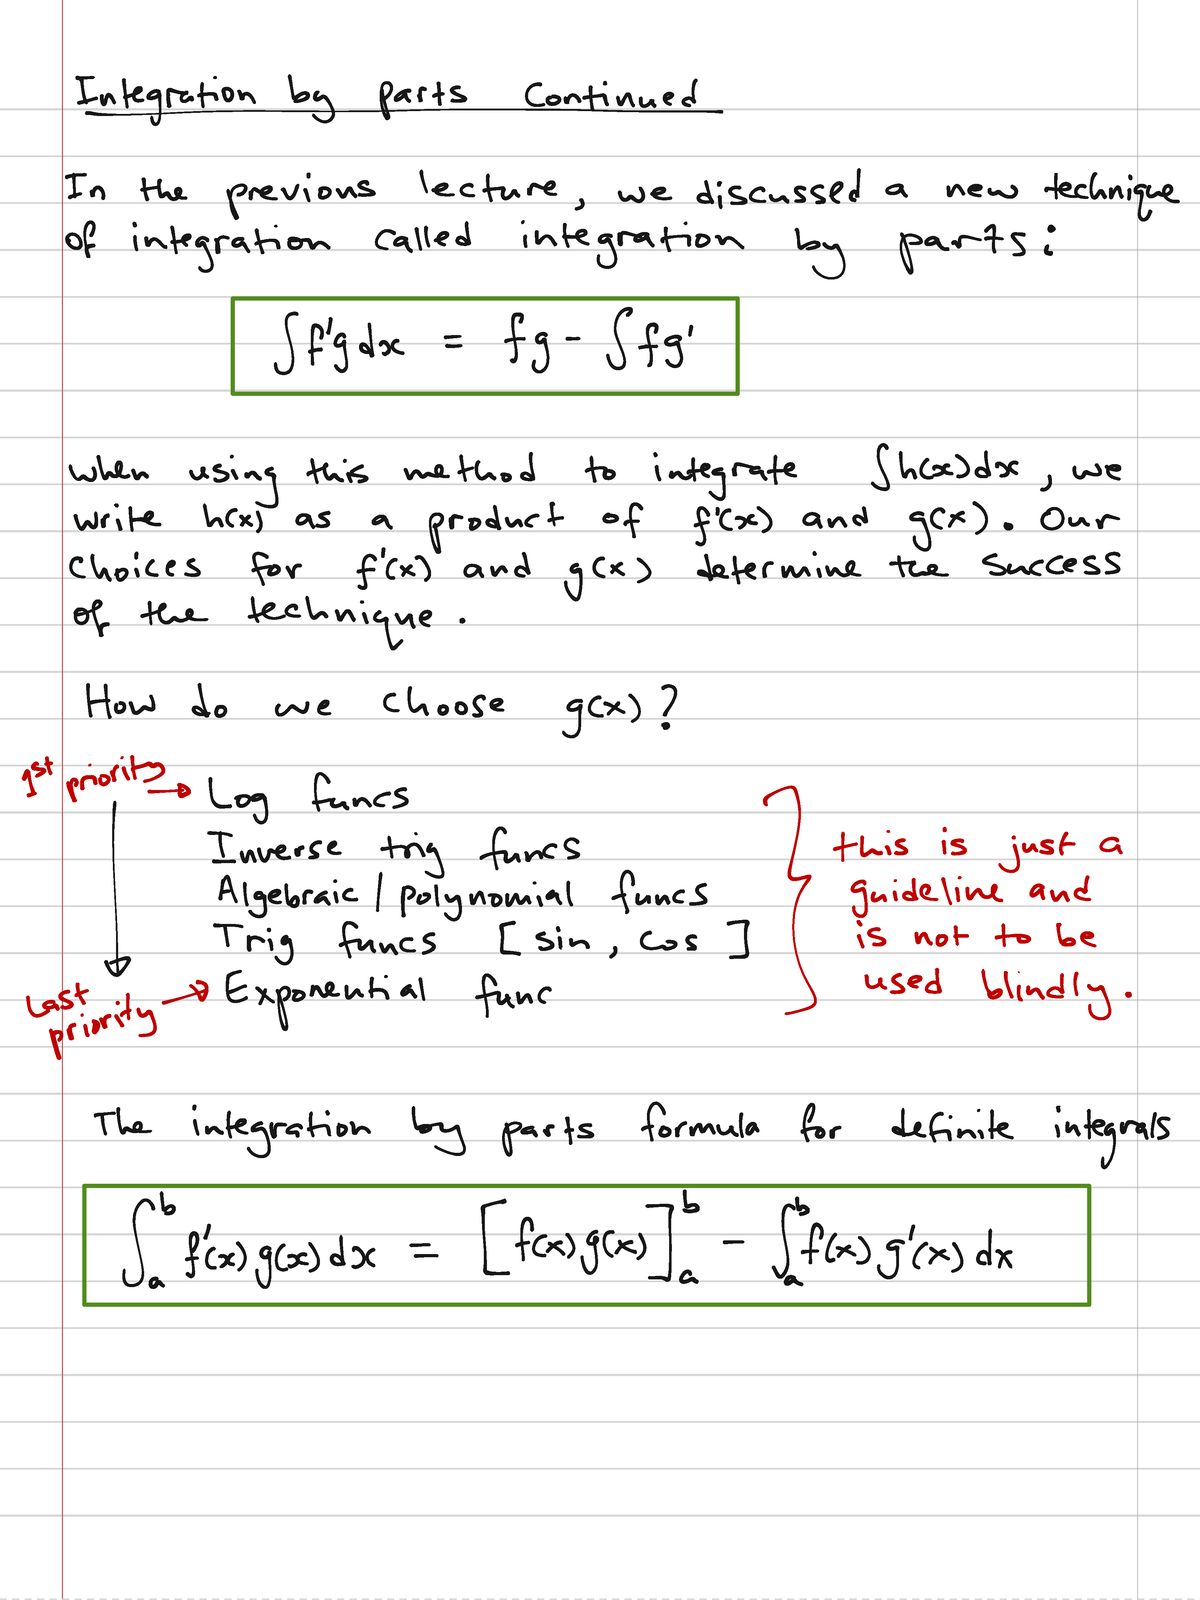 Integration by parts Continued
In the previous lecture, we discussed a new technique
of integration called integration by parts:
∫f'g dx = fg - ∫fg'
When using this method to integrate ∫h(x)dx, we
write h(x) as a product of f'(x) and g(x). Our
choices for f'(x) and g(x) determine the success
of the technique.
How do we choose g(x)?
1st priority → Log funcs
Inverse trig funcs
Algebraic / polynomial funcs
Trig funcs [sin, cos]
Last priority → Exponential func
this is just a
guideline and
is not to be
used blindly.
The integration by parts formula for definite integrals
∫_a^b f'(x) g(x) dx = [f(x) g(x)]_a^b - ∫_a^b f(x) g'(x) dx